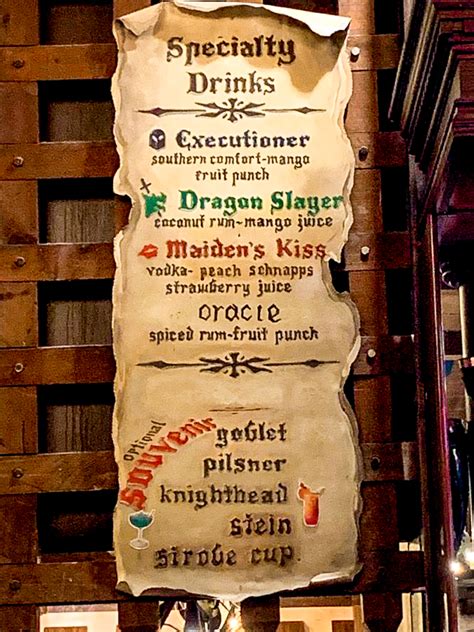 Specialty
Drinks
Executioner
southern comfort-mango
fruit punch
Dragon Slayer
coconut rum-mango juice
Maiden's Kiss
vodka- peach schnapps
strawberry juice
oracle
spiced rum-fruit punch
optional
Souvenir
goblet
pilsner
knighthead
stein
strobe cup